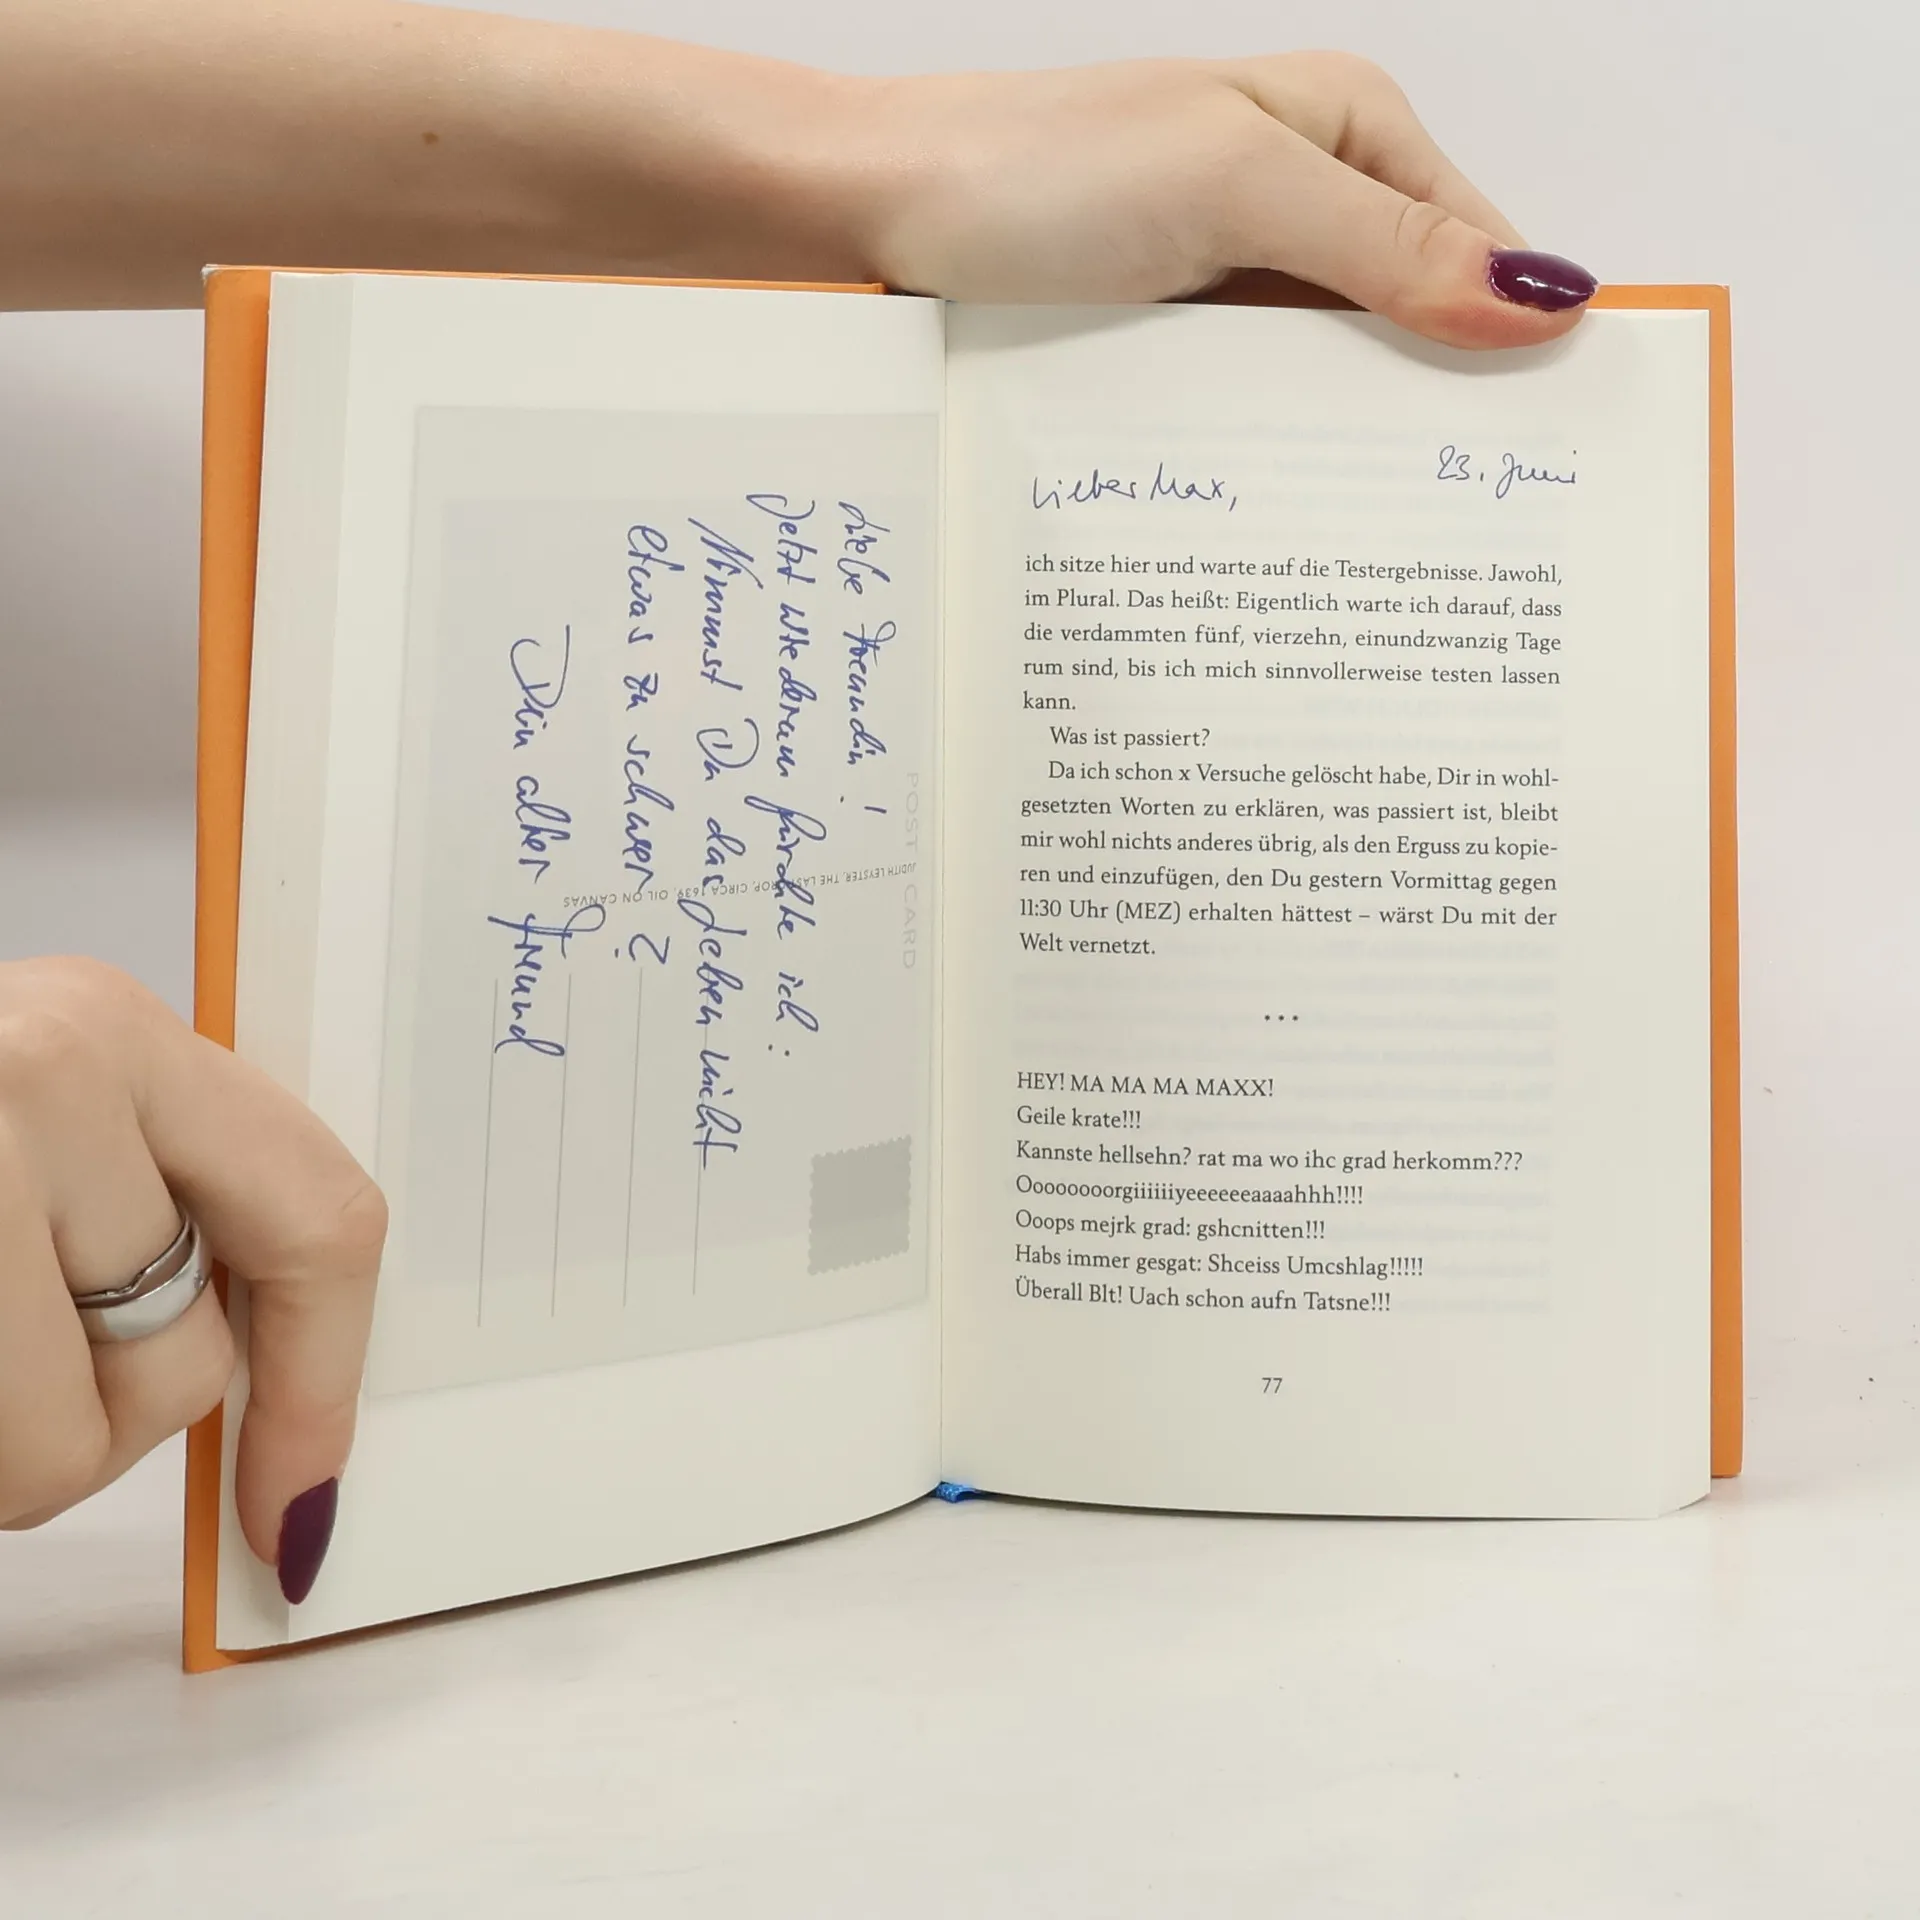 POST CARD
JUDITH LEYSTER, THE LAST DROP, CIRCA 1639, OIL ON CANVAS
Liebe Freundin!
Jetzt wiederum fürchte ich:
Nimmst Du das Leben nicht
etwas zu schwer?
Dein alter Freund
23. Juni
Lieber Max,
ich sitze hier und warte auf die Testergebnisse. Jawohl,
im Plural. Das heißt: Eigentlich warte ich darauf, dass
die verdammten fünf, vierzehn, einundzwanzig Tage
rum sind, bis ich mich sinnvollerweise testen lassen
kann.
Was ist passiert?
Da ich schon x Versuche gelöscht habe, Dir in wohl-
gesetzten Worten zu erklären, was passiert ist, bleibt
mir wohl nichts anderes übrig, als den Erguss zu kopie-
ren und einzufügen, den Du gestern Vormittag gegen
11:30 Uhr (MEZ) erhalten hättest – wärst Du mit der
Welt vernetzt.
...
HEY! MA MA MA MAXX!
Geile krate!!!
Kannste hellsehn? rat ma wo ihc grad herkomm???
Ooooooooorgiiiiiiyeeeeeeaaaahhh!!!!
Ooops mejrk grad: gshcnitten!!!
Habs immer gesgat: Shceiss Umcshlag!!!!!
Überall Blt! Uach schon aufn Tatsne!!!
77